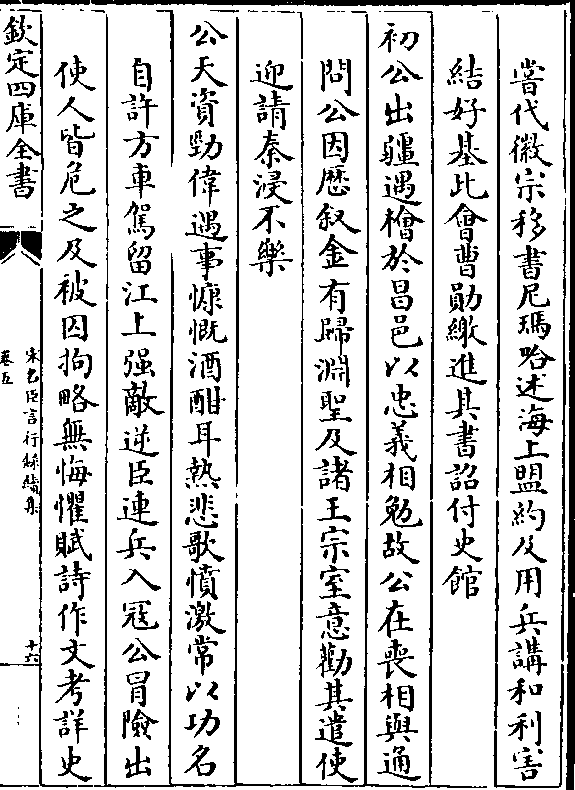 嘗代徽宗移書尼瑪哈述海上盟約及用兵講和利害
結好基此會曹勛繳進其書詔付史館
初公出疆遇檜於昌邑以忠義相勉故公在喪相與通
問公因歴叙金有歸淵聖及諸王宗室意勸其遣使
迎請秦浸不樂
公天資勁偉遇事慷慨酒酣耳熱悲歌憤激常以功名
自許方車駕留江上强敵逆臣連兵入冦公冒險出
使人皆危之及被囚拘略無悔懼賦詩作文考詳史
欽定四庫全書
宋名臣言行録續集
卷五
十六